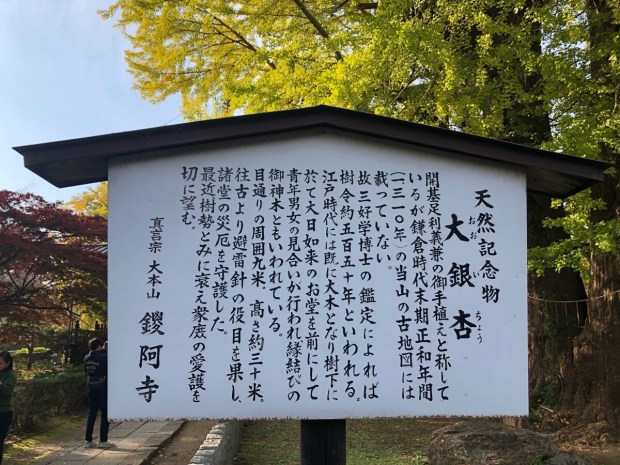 天然記念物
大銀杏
おお
ちょう
開基足利義兼の御手植えと称して
いるが鎌倉時代末期正和年間
(一三一〇年)の当山の古地図には
載っていない。
故三好学博士の鑑定によれば
樹令約五百五十年といわれる。
江戸時代には既に大木となり樹下に
於て大日如来のお堂を前にして
青年男女の見合いが行われ縁結びの
御神木ともいわれている。
目通りの周囲九米、高さ約三十米、
往古より避雷針の役目を果し、
諸堂の災厄を守護した。
最近樹勢とみに衰え衆庶の愛護を
切に望む。
真言宗 大本山 鑁阿寺